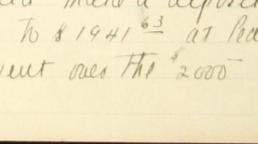 made a deposit
to $1941 63 at Pea
went over the $2000